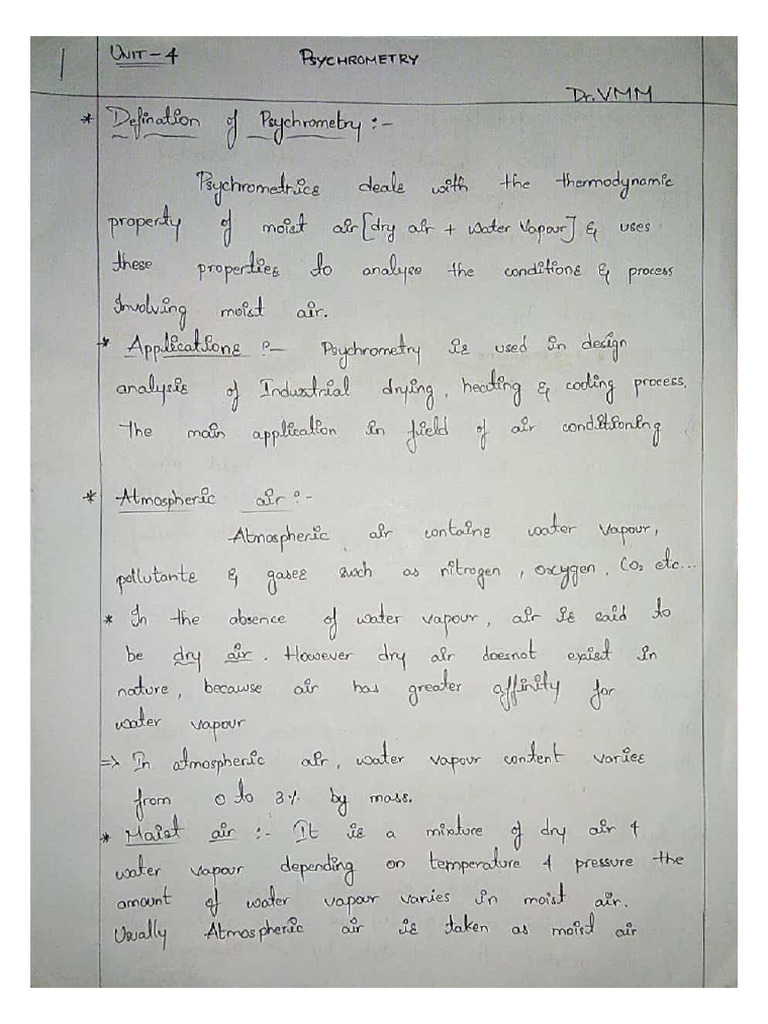 1 UNIT-4 PSYCHROMETRY
Dr. VMM
* Defination of Psychrometry :-
Psychrometrics deals with the thermodynamic
property of moist air [dry air + water vapour] & uses
these properties to analyse the conditions & process
Involving moist air.
* Applications :- Psychrometry is used in design
analysis of Industrial drying, heating & cooling process.
The main application in field of air conditioning
* Atmospheric air :-
Atmospheric air contains water vapour,
pollutants & gases such as nitrogen, oxygen, CO2 etc...
* In the absence of water vapour, air is said to
be dry air. However dry air doesnot exist in
nature, because air has greater affinity for
water vapour
=> In atmospheric air, water vapour content varies
from 0 to 3% by mass.
* Moist air :- It is a mixture of dry air &
water vapour depending on temperature & pressure the
amount of water vapour varies in moist air.
Usually Atmospheric air is taken as moist air